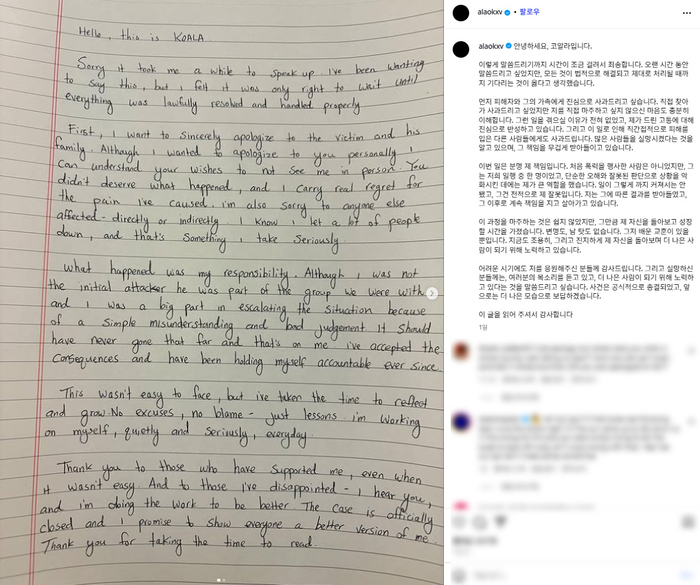 Hello, this is KOALA.
Sorry it took me a while to speak up. I've been wanting
to say this, but I felt it was only right to wait until
everything was lawfully resolved and handled properly
First, I want to sincerely apologize to the victim and his
family. Although I wanted to apologize to you personally I
can understand your wishes to not see me in person. You
didn't deserve what happened, and I carry real regret for
the pain I've caused. i'm also sorry to anyone else
affected - directly or indirectly I know I let a lot of people
down, and that's something I take seriously.
What happened was my responsibility. Although I was not
the initial attacker he was part of the group we were with
and I was a big part in escalating the situation because
of a simple misunderstanding and bad judgement It should
have never gone that far and that's on me i've accepted the
consequences and have been holding myself accountable ever since.
This wasn't easy to face, but ive taken the time to reflect
and grow. No excuses, no blame - just lessons i'm working
on myself, quietly and seriously, everyday
Thank you to those who have supported me, even when
it wasn't easy. And to those I've disappointed - I hear you,
and i'm doing the work to be better The case is officially
closed and I promise to show everyone a better version of me
Thank you for taking the time to read.
alaokxv • 팔로우
alaokxv 안녕하세요, 코알라입니다.
이렇게 말씀드리기까지 시간이 조금 걸려서 죄송합니다. 오랜 시간 동안
말씀드리고 싶었지만, 모든 것이 법적으로 해결되고 제대로 처리될 때까
지 기다리는 것이 옳다고 생각했습니다.
먼저 피해자와 그의 가족에게 진심으로 사과드리고 싶습니다. 직접 찾아
가 사과드리고 싶었지만 저를 직접 마주하고 싶지 않으신 마음도 충분히
이해합니다. 그런 일을 겪으실 이유가 전혀 없었고, 제가 드린 고통에 대해
진심으로 반성하고 있습니다. 그리고 이 일로 인해 직간접적으로 피해를
입은 다른 사람들에게도 사과드립니다. 많은 사람들을 실망시켰다는 것을
알고 있으며, 그 책임을 무겁게 받아들이고 있습니다.
이번 일은 분명 제 책임입니다. 처음 폭력을 행사한 사람은 아니었지만, 그
는 저희 일행 중 한 명이었고, 단순한 오해와 잘못된 판단으로 상황을 악
화시킨 데에는 제가 큰 역할을 했습니다. 일이 그렇게까지 커져서는 안
됐고, 그건 전적으로 제 잘못입니다. 저는 그에 따른 결과를 받아들였고,
그 이후로 계속 책임을 지고 살아가고 있습니다.
이 과정을 마주하는 것은 쉽지 않았지만, 그만큼 제 자신을 돌아보고 성장
할 시간을 가졌습니다. 변명도, 남 탓도 없습니다. 그저 배운 교훈이 있을
뿐입니다. 지금도 조용히, 그리고 진지하게 제 자신을 돌아보며 더 나은 사
람이 되기 위해 노력하고 있습니다.
어려운 시기에도 저를 응원해주신 분들께 감사드립니다. 그리고 실망하신
분들께는, 여러분의 목소리를 듣고 있고, 더 나은 사람이 되기 위해 노력하
고 있다는 것을 말씀드리고 싶습니다. 사건은 공식적으로 종결되었고, 앞
으로는 더 나은 모습으로 보답하겠습니다.
이 글을 읽어 주셔서 감사합니다
1일